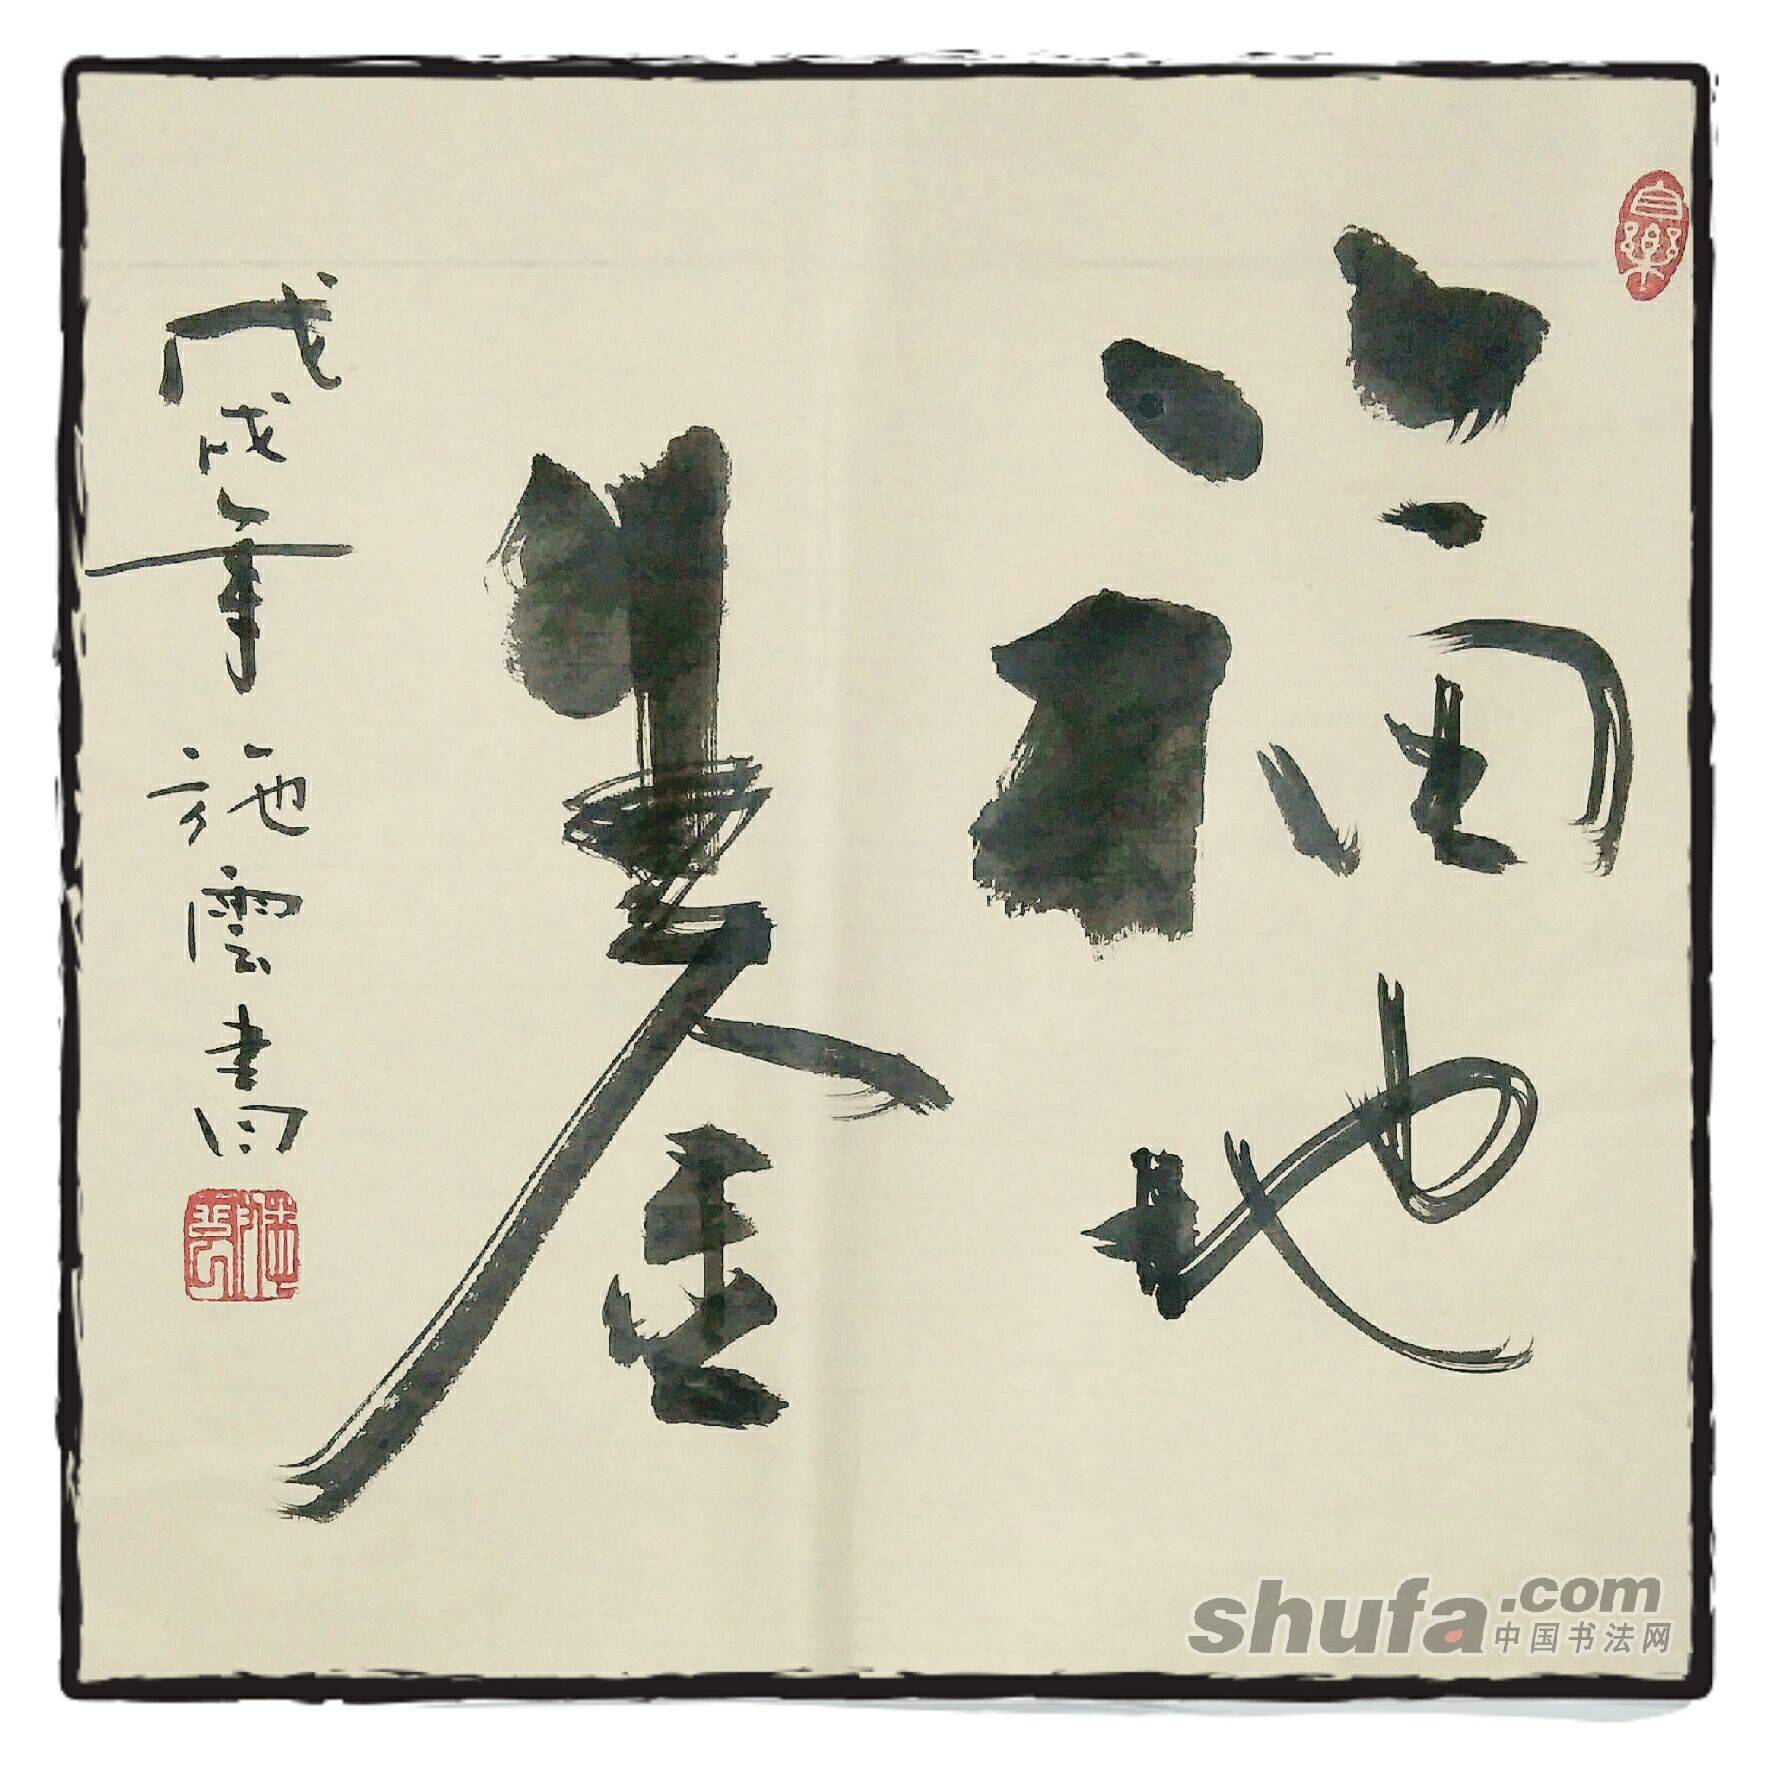 福地
生金
戊戌年施雲書
自樂
shufa.com
中国书法网